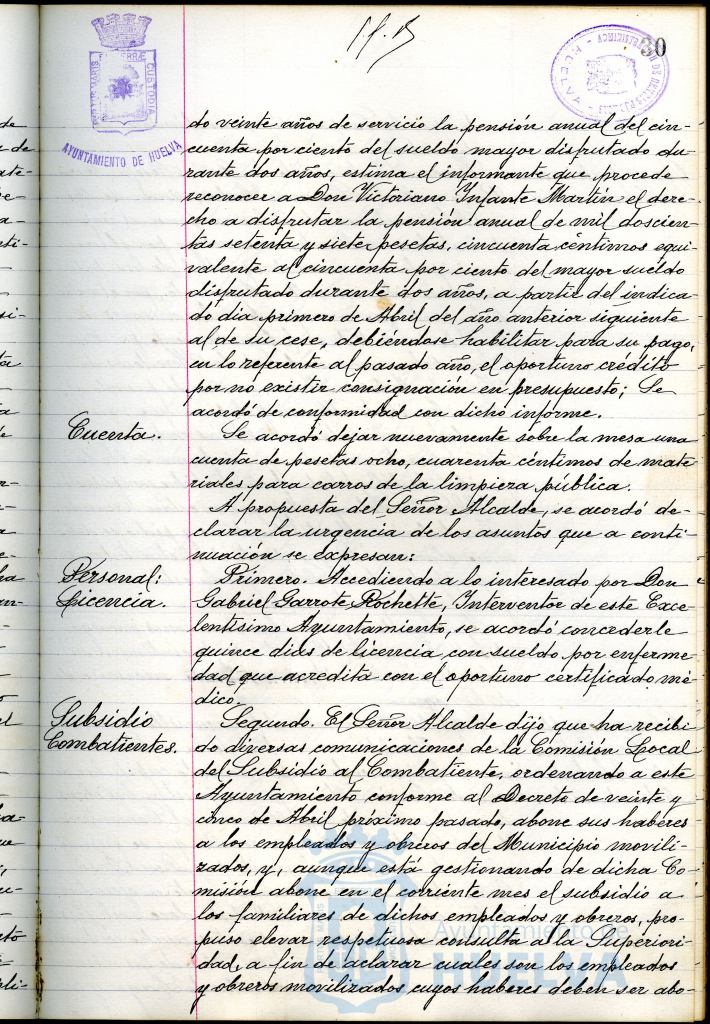 30
AYUNTAMIENTO DE HUELVA
do veinte años de servicio la pensión anual del cin-
cuenta por ciento del sueldo mayor disfrutado du-
rante dos años, estima el informante que procede
reconocer a Don Victoriano Infante Martín el dere-
cho a disfrutar la pensión anual de mil doscien-
tas setenta y siete pesetas, cincuenta céntimos equi
valente al cincuenta por ciento del mayor sueldo
disfrutado durante dos años, a partir del indica-
do dia primero de Abril del año anterior siguiente
al de su cese, debiéndose habilitar para su pago,
en lo referente al pasado año, el oportuno crédito
por no existir consignación en presupuesto; Se
acordó de conformidad con dicho informe.
Cuenta.
Se acordó dejar nuevamente sobre la mesa una
cuenta de pesetas ocho, cuarenta céntimos de mate-
riales para carros de la limpieza pública.
A propuesta del Señor Alcalde, se acordó de-
clarar la urgencia de los asuntos que a conti-
nuación se expresan:
Personal:
Licencia.
Primero. Accediendo a lo interesado por Don
Gabriel Garrote Rochette, Interventor de este Exce-
lentísimo Ayuntamiento, se acordó concederle
quince dias de licencia, con sueldo, por enferme-
dad que acredita con el oportuno certificado mé
dico.
Subsidio
Combatientes.
Segundo. El Señor Alcalde dijo que ha recibi
do diversas comunicaciones de la Comisión Local
del Subsidio al Combatiente, ordenando a este
Ayuntamiento conforme al Decreto de veinte y
cinco de Abril próximo pasado, abone sus haberes
a los empleados y obreros del Municipio movili-
zados, y, aunque está gestionando de dicha Co-
misión abone en el corriente mes el subsidio a
los familiares de dichos empleados y obreros, pro-
puso elevar respetuosa consulta a la Superiori-
dad, a fin de aclarar cuales son los empleados
y obreros movilizados cuyos haberes deben ser abo-
Ayuntamiento de
HUELVA